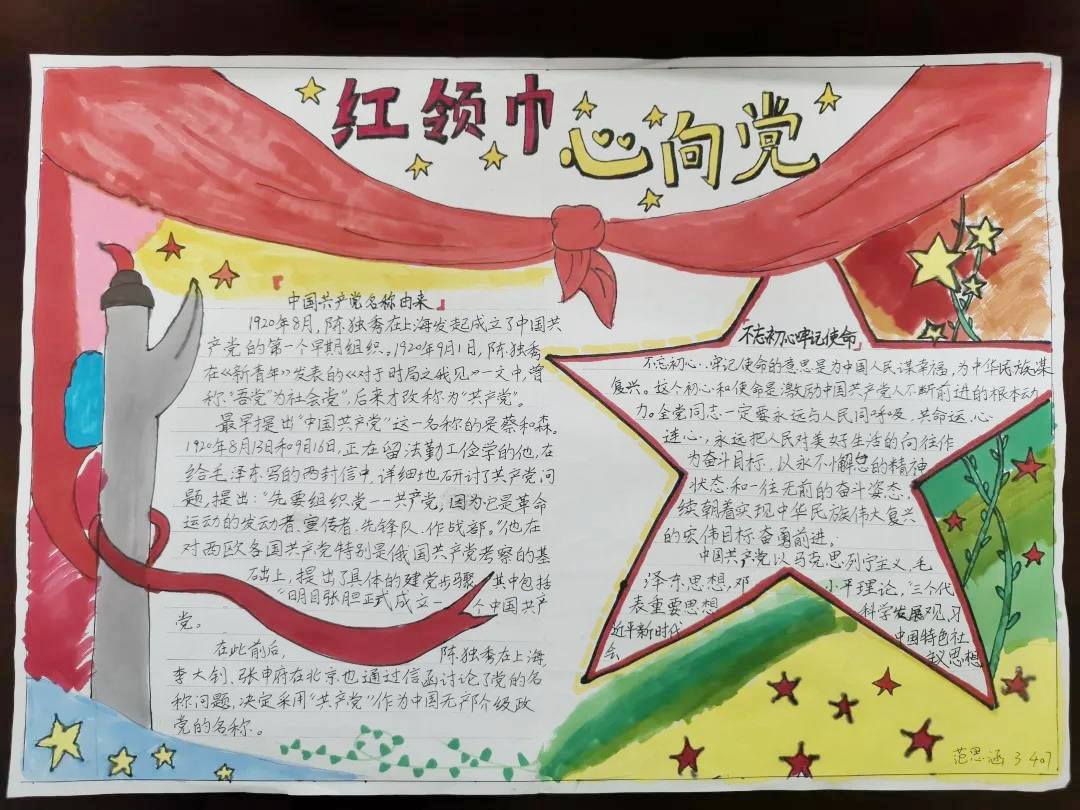 红领巾
心向党
中国共产党名称由来
1920年8月,陈独秀在上海发起成立了中国共
产党的第一个早期组织。1920年9月1日,陈独秀
在《新青年》发表的《对于时局之我见》一文中,曾
称“吾党”为社会党”,后来才改称为“共产党”。
最早提出“中国共产党”这一名称的是蔡和森。
1920年8月13日和9月16日,正在留法勤工俭学的他,在
给毛泽东写的两封信中,详细地研讨了共产党问
题,提出:“先要组织党——共产党,因为它是革命
运动的发动者、宣传者、先锋队、作战部。”他在
对西欧各国共产党特别是俄国共产党考察的基
础上,提出了具体的建党步骤,其中包括
“明目张胆正式成立一个中国共产
党。
在此前后,陈独秀在上海,
李大钊、张申府在北京也通过信函讨论了党的名
称问题,决定采用“共产党”作为中国无产阶级政
党的名称。
不忘初心牢记使命
不忘初心,牢记使命的意思是为中国人民谋幸福,为中华民族谋
复兴。这个初心和使命是激励中国共产党人不断前进的根本动
力。全党同志一定要永远与人民同呼吸、共命运、心
连心,永远把人民对美好生活的向往作
为奋斗目标,以永不懈怠的精神
状态和一往无前的奋斗姿态,
续朝着实现中华民族伟大复兴
的宏伟目标奋勇前进,
中国共产党以马克思列宁主义、毛
泽东思想、邓小平理论,“三个代
表重要思想 科学发展观、习
近平新时代 中国特色社
会 主义思想
范思涵 3 407